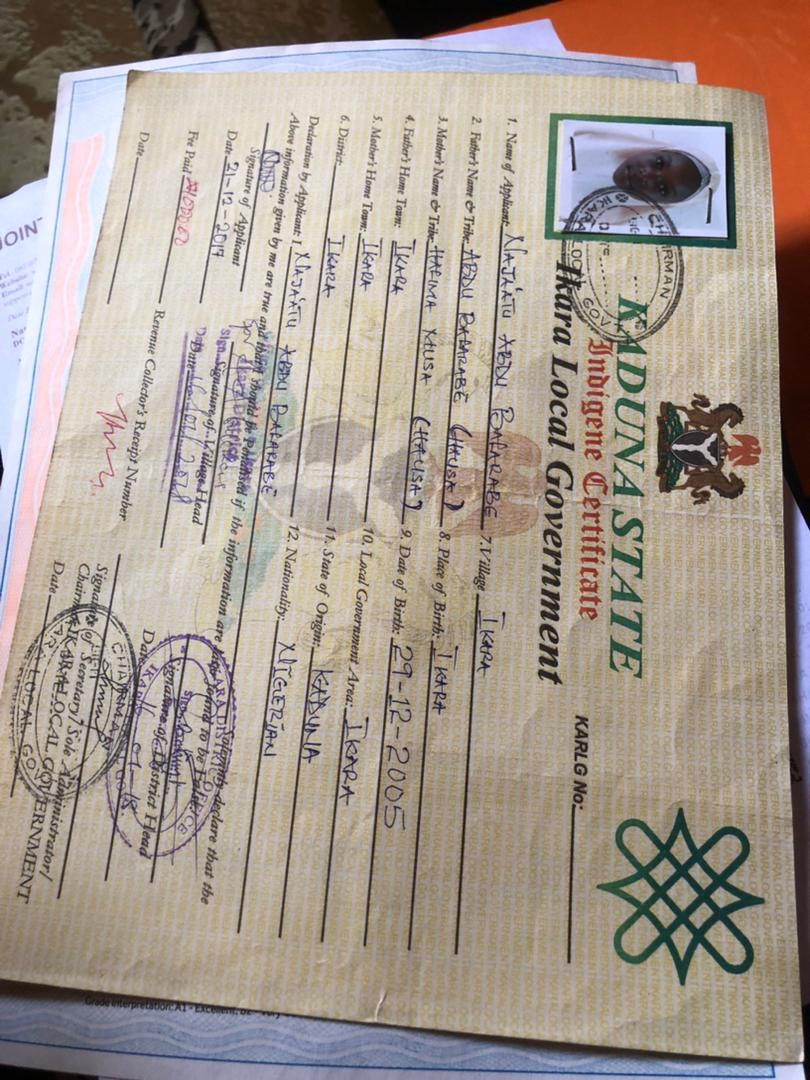 KADUNA STATE
Indigene Certificate
Ikara Local Government
KARLG No:
1. Name of Applicant: NAJA'ATU ABDU BALARABE 7. Village IKARA
2. Father's Name & Tribe: ABDU BALARABE (HAUSA) 8. Place of Birth: IKARA
3. Mother's Name & Tribe: HALIMA HAUSA (HAUSA) 9. Date of Birth: 29-12-2005
4. Father's Home Town: IKARA 10. Local Government Area: IKARA
5. Mother's Home Town: IKARA 11. State of Origin: KADUNA
6. District: IKARA 12. Nationality: NIGERIAN
Declaration by Applicant: I NAJA'ATU ABDU BALARABE Solemnly declare that the
Above information given by me are true and that I should be penalised if the information are found to be False.
Signature of Applicant
Date 21-12-2017
Signature of Village Head
Date
Signature of District Head
Date
Fee Paid
Revenue Collector's Receipt Number
Signature of Secretary/Sole Administrator/
Chairman IKARA LOCAL GOVERNMENT
Date
Date
CHAIRMAN
IKARA LOCAL GOVT
Grade interpretation: A1 - Excellent, B2 - Very
JOINT